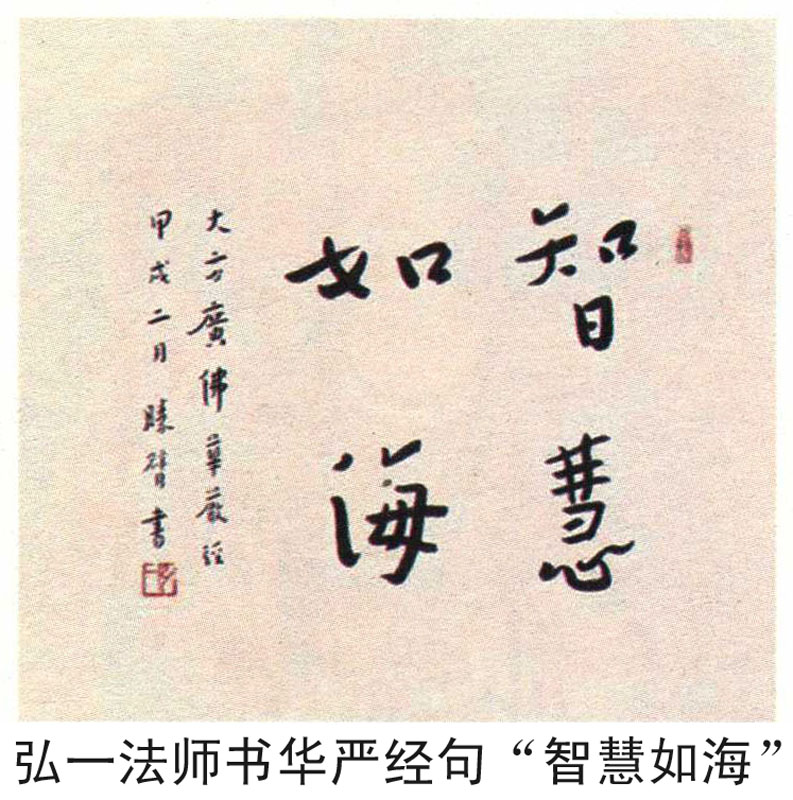 智慧
如海
大方廣佛華嚴經
甲戌二月勝臂書
弘一法师书华严经句“智慧如海”